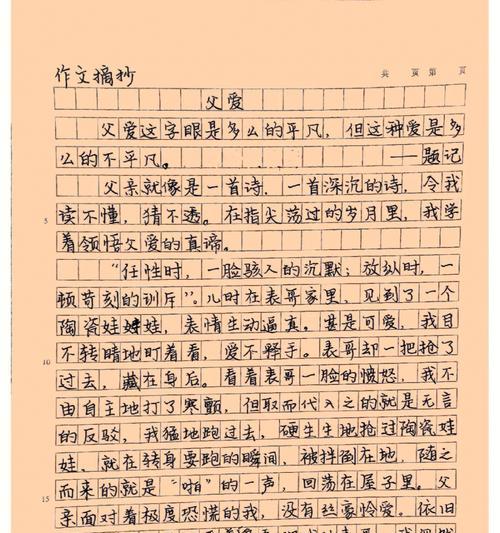 作文摘抄
共 页第 页
父爱
父爱这字眼是多么的平凡，但这种爱是多
么的不平凡。 ——题记
父亲就像是一首诗，一首深沉的诗，令我
5 读不懂，猜不透。在指尖荡过的岁月里，我学
着领悟父爱的真谛。
“任性时，一脸骇人的沉默；放纵时，一
顿苛刻的训斥”。儿时在表哥家里，见到了一个
陶瓷娃娃，表情生动逼真。甚是可爱，我目
10 不转睛地盯着看，爱不释手。表哥却一把抢了
过去，藏在身后。看着表哥一脸的愤怒，我不
由自主地打了寒颤，但取而代入之的就是无言
的反驳，我猛地跑过去，硬生生地抢过陶瓷娃
娃、就在转身要跑的瞬间，被拌倒在地，随之
而来的就是“啪”的一声，回荡在屋子里。父
15 亲面对着极度恐慌的我，没有丝豪怜爱。依旧